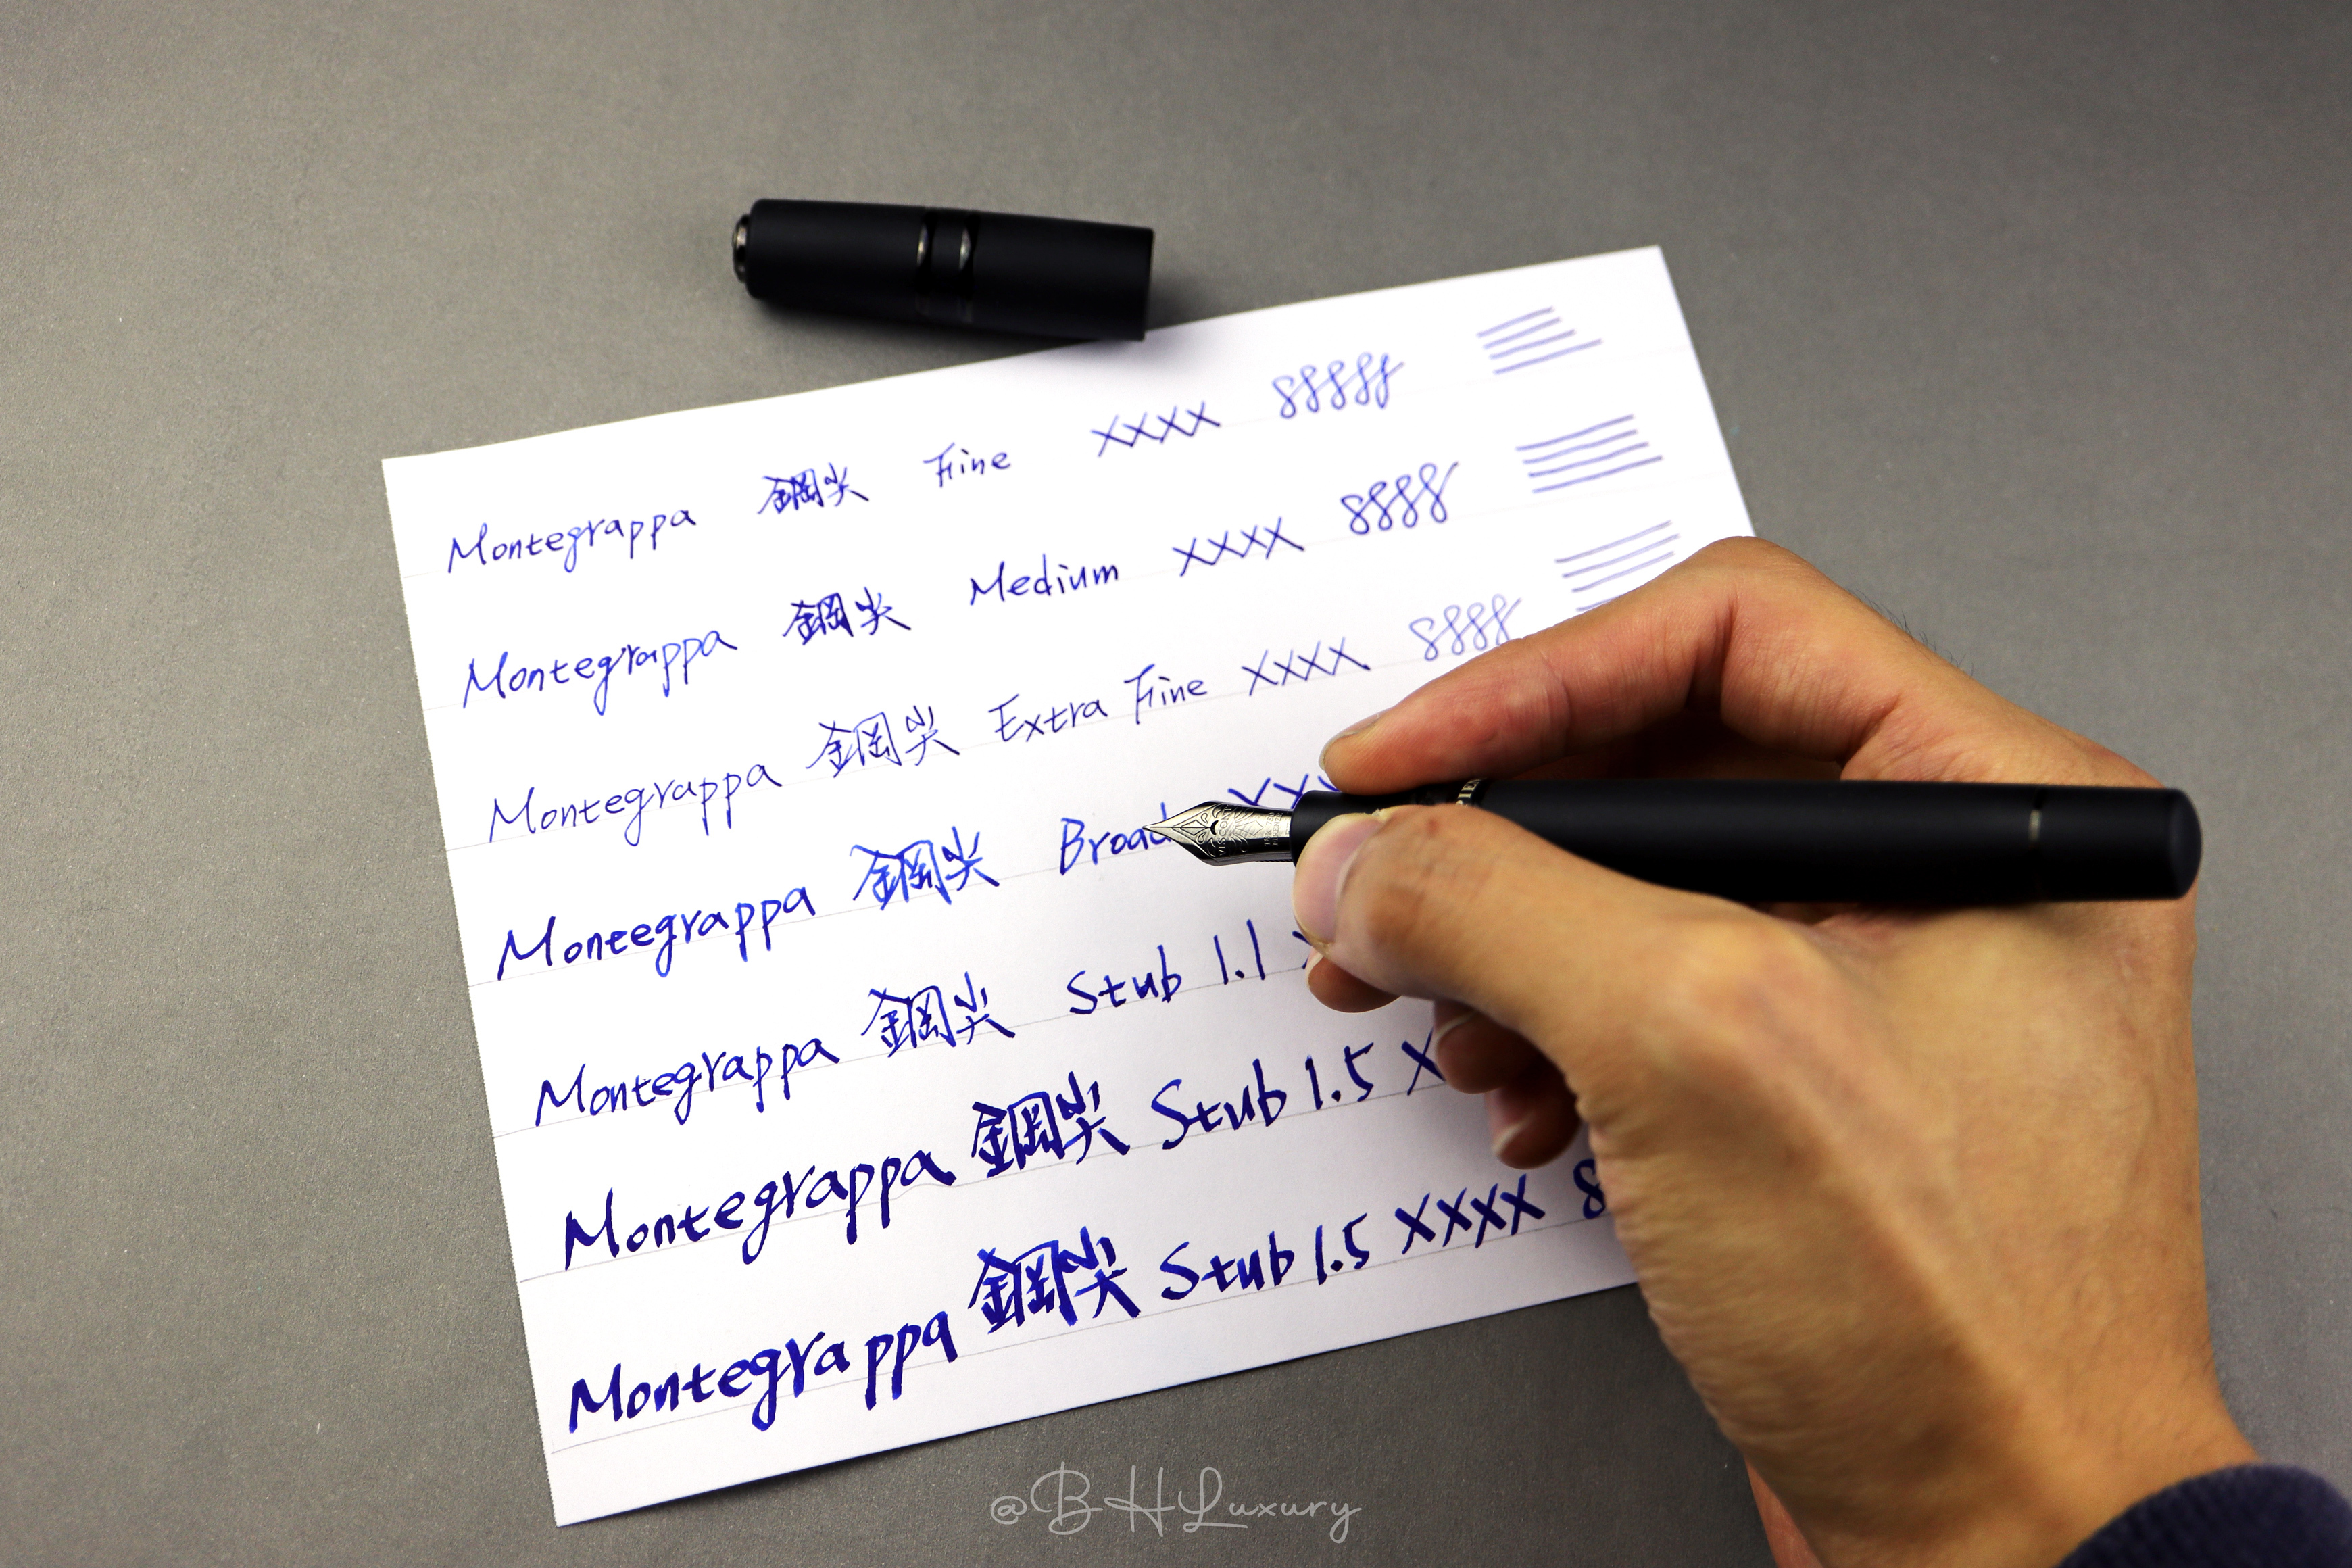 Montegrappa 鋼尖 Fine XXXX 88888
Montegrappa 鋼尖 Medium XXXX 8888
Montegrappa 鋼尖 Extra Fine XXXX 8888
Monteegrappa 鋼尖 Broad XXX
Montegrappa 鋼尖 Stub 1.1
Montegrappa 鋼尖 Stub 1.5 X
Montegrappa 鋼尖 Stub 1.5 XXXX 8
@BHLuxury